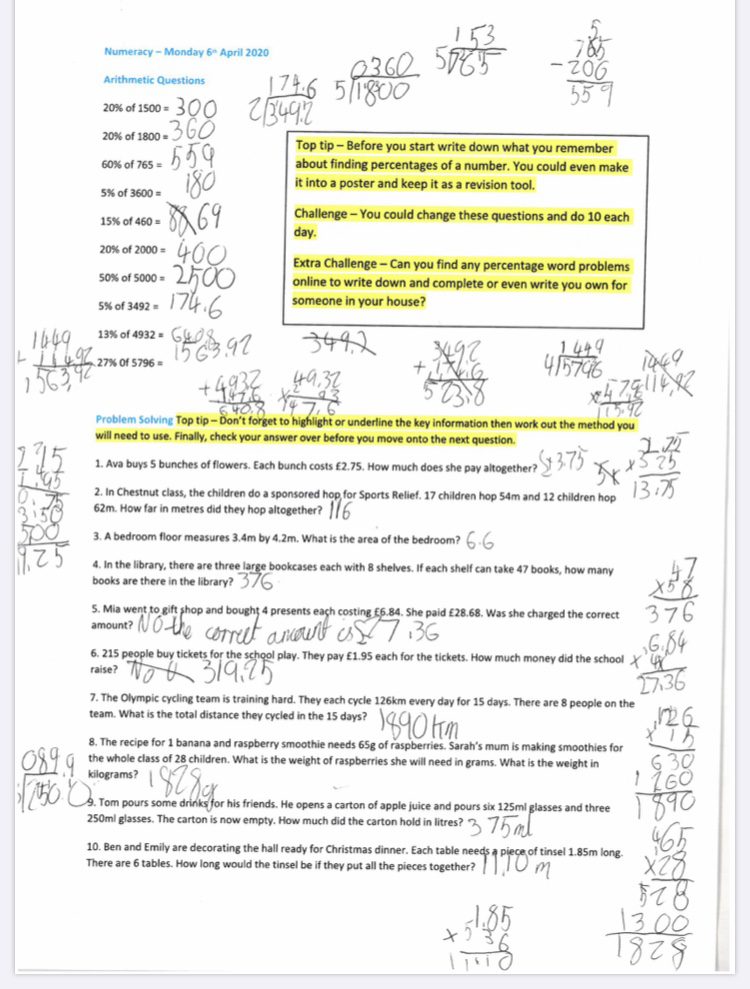 153
5 765
5
765
- 206
559
Numeracy – Monday 6th April 2020
0360
5 1800
174.6
2 349.2
Arithmetic Questions
20% of 1500 = 300
20% of 1800 = 360
60% of 765 = 559
5% of 3600 = 180
15% of 460 = 69
20% of 2000 = 400
50% of 5000 = 2500
5% of 3492 = 174.6
13% of 4932 = 640.8
27% Of 5796 = 1563.92
Top tip – Before you start write down what you remember
about finding percentages of a number. You could even make
it into a poster and keep it as a revision tool.
Challenge – You could change these questions and do 10 each
day.
Extra Challenge – Can you find any percentage word problems
online to write down and complete or even write you own for
someone in your house?
1449
114.92
1563.92
349.2
349.2
+ 174.6
523.8
1449
4 5796
1449
114.92
115.92
+ 4932
147.6
640.8
49.32
147.6
Problem Solving Top tip – Don't forget to highlight or underline the key information then work out the method you
will need to use. Finally, check your answer over before you move onto the next question.
1. Ava buys 5 bunches of flowers. Each bunch costs £2.75. How much does she pay altogether? 
2.75
13.75
2. In Chestnut class, the children do a sponsored hop for Sports Relief. 17 children hop 54m and 12 children hop
62m. How far in metres did they hop altogether? 116
3. A bedroom floor measures 3.4m by 4.2m. What is the area of the bedroom? 6.6
4. In the library, there are three large bookcases each with 8 shelves. If each shelf can take 47 books, how many
books are there in the library? 376
47
376
5. Mia went to gift shop and bought 4 presents each costing £6.84. She paid £28.68. Was she charged the correct
amount? No the correct amount is £27.36
6.84
x 4
27.36
6. 215 people buy tickets for the school play. They pay £1.95 each for the tickets. How much money did the school
raise? 319.25
7. The Olympic cycling team is training hard. They each cycle 126km every day for 15 days. There are 8 people on the
team. What is the total distance they cycled in the 15 days? 1890km
126
x 15
630
1260
1890
8. The recipe for 1 banana and raspberry smoothie needs 65g of raspberries. Sarah's mum is making smoothies for
the whole class of 28 children. What is the weight of raspberries she will need in grams. What is the weight in
kilograms? 1828g
9. Tom pours some drinks for his friends. He opens a carton of apple juice and pours six 125ml glasses and three
250ml glasses. The carton is now empty. How much did the carton hold in litres? 375ml
10. Ben and Emily are decorating the hall ready for Christmas dinner. Each table needs a piece of tinsel 1.85m long.
There are 6 tables. How long would the tinsel be if they put all the pieces together? 11.10 m
65
x28
528
1300
1828
1.85
x 6
11.10